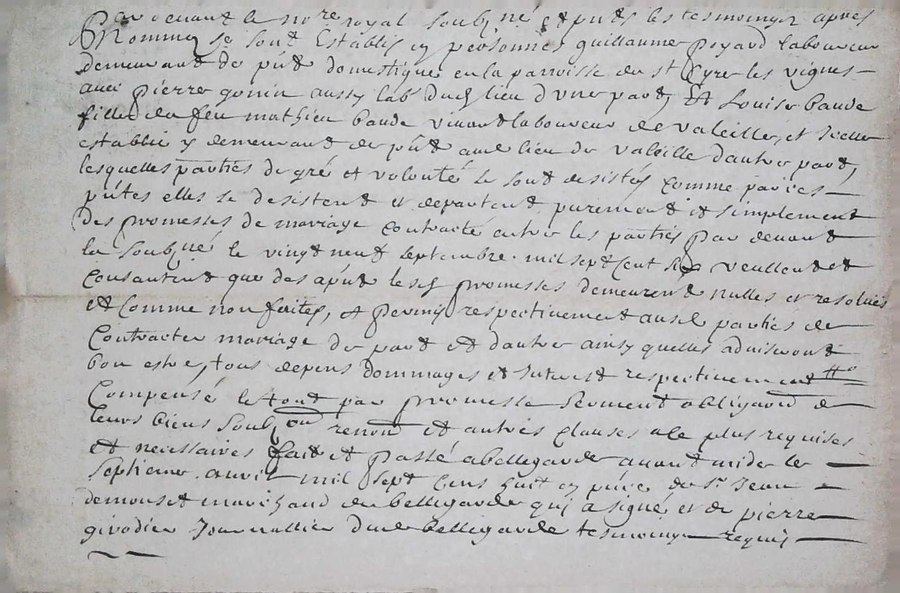 Par devant le no.re royal soubz.né et p̄nts les tesmoingz apres
Nommez se sont Establis en personnes guillaume poyard laboureur
demeurant de p̄nt domestique en la parroisse de st Cyre les vignes
avec pierre gonin aussy lab.r dud lieu d'une part, Et Louise baude
fille de feu mathieu baude vivant laboureur de valeille, et Icelle
establie y demeurant de p̄nt aud lieu de valeille d'autre part,
lesquelles parties de gré et volonté se sont desistés comme par ces
p̄ntes elles se desistent et departent purement et simplement
des promesses de mariage contracté entre les parties par devant
le soubz.né le vingt neuf septembre mil sept cent veullent et
consantent que des ap̄nt lesd promesses demeurent nulles et resolues
et comme non faites, et permis respectivement ausd parties de
Contracter mariage de part et d'autre ainsy quelles adviseront
bon estre, tous depens dommages et interest respectivement
Compensé le tout par promesse serment obligaõn de
leurs biens soubz.on renon.on et autres clauses a ce plus requises
et necessaires fait et passé a bellegarde avant midy le
septieme avril mil sept cens huit en p̄nce de s.r Jean
demouset marchand de bellegarde qui a signé et de pierre
givodier Journallier dud bellegarde tesmoings requis